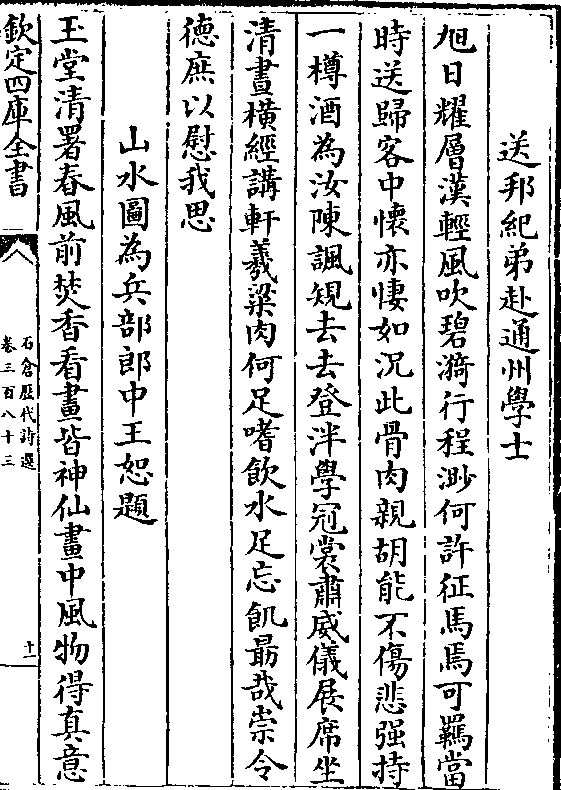 送邦紀弟赴通州學士
旭日耀層漢輕風吹碧漪行程渺何許征馬焉可羈當
時送歸客中懷亦悽如況此骨肉親胡能不傷悲强持
一樽酒為汝陳諷規去去登泮學冠裳肅威儀展席坐
清晝橫經講軒羲粱肉何足嗜飲水足忘飢勗哉崇令
德庶以慰我思
山水圖為兵部郎中王恕題
玉堂清署春風前焚香看畫皆神仙畫中風物得真意
欽定四庫全書
石倉歷代詩選
卷三百八十三
十一